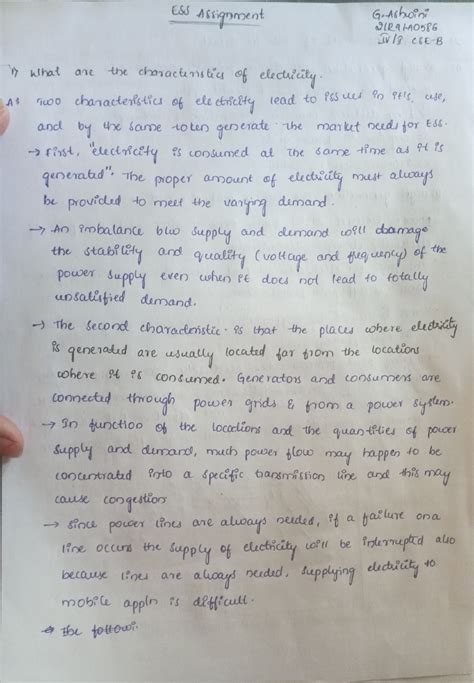 ESS Assignment
G. Ashwini
21R91A0586
IV/I CSE-B
1) What are the characteristics of electricity.
A) Two characteristics of electricity lead to issues in it's use,
and by the same token generate the market needs for ESS.
→ First, "electricity is consumed at the same time as it is
generated". The proper amount of electricity must always
be provided to meet the varying demand.
→ An imbalance b/w supply and demand will damage
the stability and quality (voltage and frequency) of the
power supply even when it does not lead to totally
unsatisfied demand.
→ The second characteristic is that the places where electricity
is generated are usually located far from the locations
where it is consumed. Generators and consumers are
connected through power grids & from a power system.
→ In function of the locations and the quantities of power
supply and demand, much power flow may happen to be
concentrated into a specific transmission line and this may
cause congestion
→ Since power lines are always needed, if a failure on a
line occurs the supply of electricity will be interrupted also
because lines are always needed, supplying electricity to
mobile appln is difficult.
→ the followi